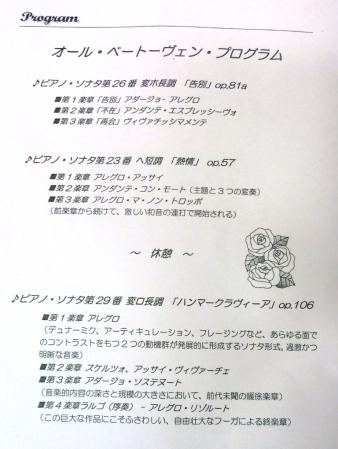 Program
オール・ベートーヴェン・プログラム
♪ピアノ・ソナタ第26番 変ホ長調 「告別」 op.81a
■第1楽章「告別」アダージョ- アレグロ
■第2楽章「不在」アンダンテ・エスプレッシーヴォ
■第3楽章「再会」ヴィヴァチッシマメンテ
♪ピアノ・ソナタ第23番 ヘ短調 「熱情」 op.57
■第1楽章 アレグロ・アッサイ
■第2楽章 アンダンテ・コン・モート(主題と3つの変奏)
■第3楽章 アレグロ・マ・ノン・トロッポ
(前楽章から続けて、激しい和音の連打で開始される)
～ 休憩 ～
♪ピアノ・ソナタ第29番 変ロ長調 「ハンマークラヴィーア」 op.106
■第1楽章 アレグロ
(デュナーミク、アーティキュレーション、フレージングなど、あらゆる面で
のコントラストをもつ2つの動機群が発展的に形成するソナタ形式。過激かつ
明晰な音楽)
■第2楽章 スケルツォ、アッサイ・ヴィヴァーチェ
■第3楽章 アダージョ・ソステヌート
(音楽的内容の深さと規模の大きさにおいて、前代未聞の緩徐楽章)
■第4楽章ラルゴ(序奏) - アレグロ・リゾルート
(この巨大な作品にこそふさわしい、自由壮大なフーガによる終楽章)